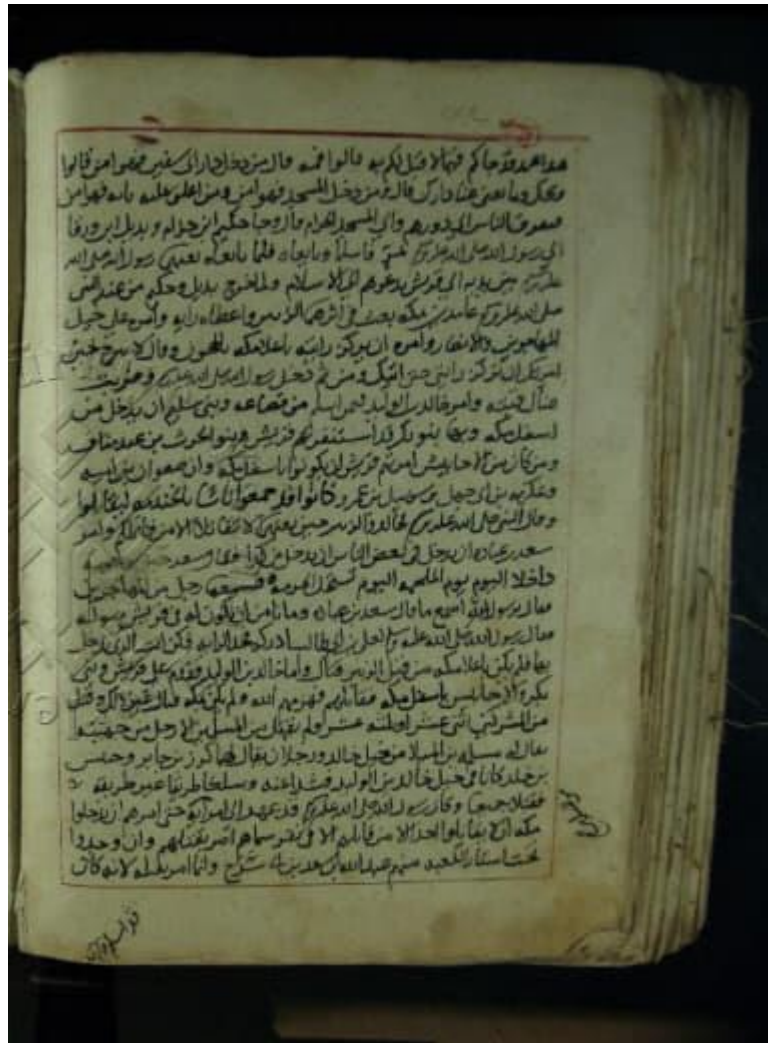 هذا محمد قد جاكم فيما لا قبل لكم به قالوا فمه قال من دخل دار ابى سفين فهو امن قالوا
ويحك وما تغنى عنا دارك قال ومن دخل المسجد فهو امن ومن اغلق عليه بابه فهو امن
فتفرق الناس الى دورهم والى المسجد الحرام قال وجا حكيم ابن حزام وبديل ابن ورقا
الى رسول الله صلى الله عليه وسلم فاسلما وبايعاه فلما بايعاه بعثهما رسول الله صلى الله
عليه وسلم بين يديه الى قريش يدعوهم الى الاسلام ولما خرج بديل وحكيم من عند النبى
صلى الله عليه وسلم عامدين مكه بعث فى اثرهما الزبير واعطاه رايه وامره على خيل
المهاجرين والانصار وامره ان يركز رايته باعلا مكه بالحجون وقال لا تبرح حيث
امرتك ان تركز رايتى حتى اتيك ومن ثم دخل رسول الله صلى الله عليه وسلم وضربت
هناك قبته وامر خالد بن الوليد فيمن اسلم من قضاعه وبنى سليم ان يدخل من
اسفل مكه وبها بنو بكر قد استنفرتهم قريش وبنو الحرث بن عبد مناف
ومن كان من الاحابيش امرتهم قريش ان يكونوا باسفل مكه وان صفوان بن اميه
وعكرمه بن ابى جهل وسهيل بن عمرو كانوا قد جمعوا ناسا بالخندمه ليقاتلوا
وقال النبى صلى الله عليه وسلم لخالد والزبير حين بعثهما لا تقاتلا الا من قاتلكم وامر
سعد بن عباده ان يدخل فى بعض الناس من كدا فقال سعد حين
داخلا اليوم يوم الملحمه اليوم تستحل الحرمه فسمعها رجل من المهاجرين
فقال يرسول الله اسمع ما قال سعد بن عباده وما نامن ان يكون له فى قريش صوله
فقال رسول الله صلى الله عليه وسلم لعلى بن ابى طالب ادركه فخذ الرايه فكن انت الذى تدخل
بها فلم يكن باعلا مكه من قبل الزبير قتال واما خالد بن الوليد فقدم على قريش وبنى
بكر والاحابيش باسفل مكه فقاتلهم فهزمهم الله ولم يكن بمكه قتال غير ذلك وقتل
من المشركين اثنى عشر او ثلثه عشر ولم يقتل من المسلمين الا رجل من جهينه
يقال له مسلمه بن الميلا من خيل خالد ورجلان يقال لهما كرز بن جابر وخنيس
بن خلد كانا فى خيل خالد بن الوليد فشذا عنه وسلكا طريقا غير طريقه
فقتلا جميعا وكان رسول الله صلى الله عليه وسلم قد عهد الى امرايه حين امرهم ان يدخلوا
مكه ان لا يقاتلوا احدا الا من قاتلهم الا فى نفر سماهم امر بقتلهم وان وجدوا
تحت استار الكعبه منهم عبد الله بن سعد بن ابى سرح وانما امر بقتله لانه كان
قد اسلم